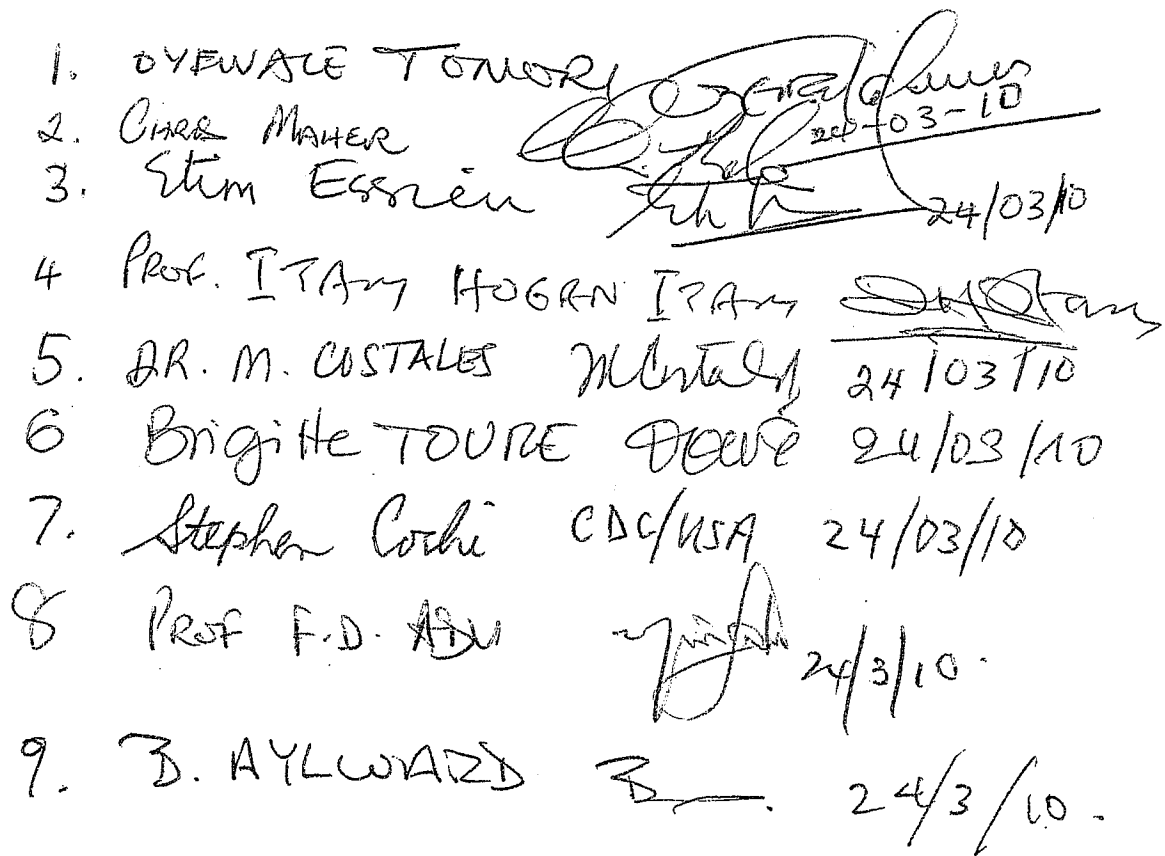 1. OYEWALE TOMORI 24-03-10
2. CHRIS MAHER
3. Etim Essien 24/03/10
4 PROF. ITAM HOGAN ITAM
5. DR. M. COSTALES MCostales 24/03/10
6 Brigitte TOURE 24/03/10
7. Stephen Cochi CDC/USA 24/03/10
8 PROF F.D. ADU 24/3/10.
9. B. AYLWARD B 24/3/10.